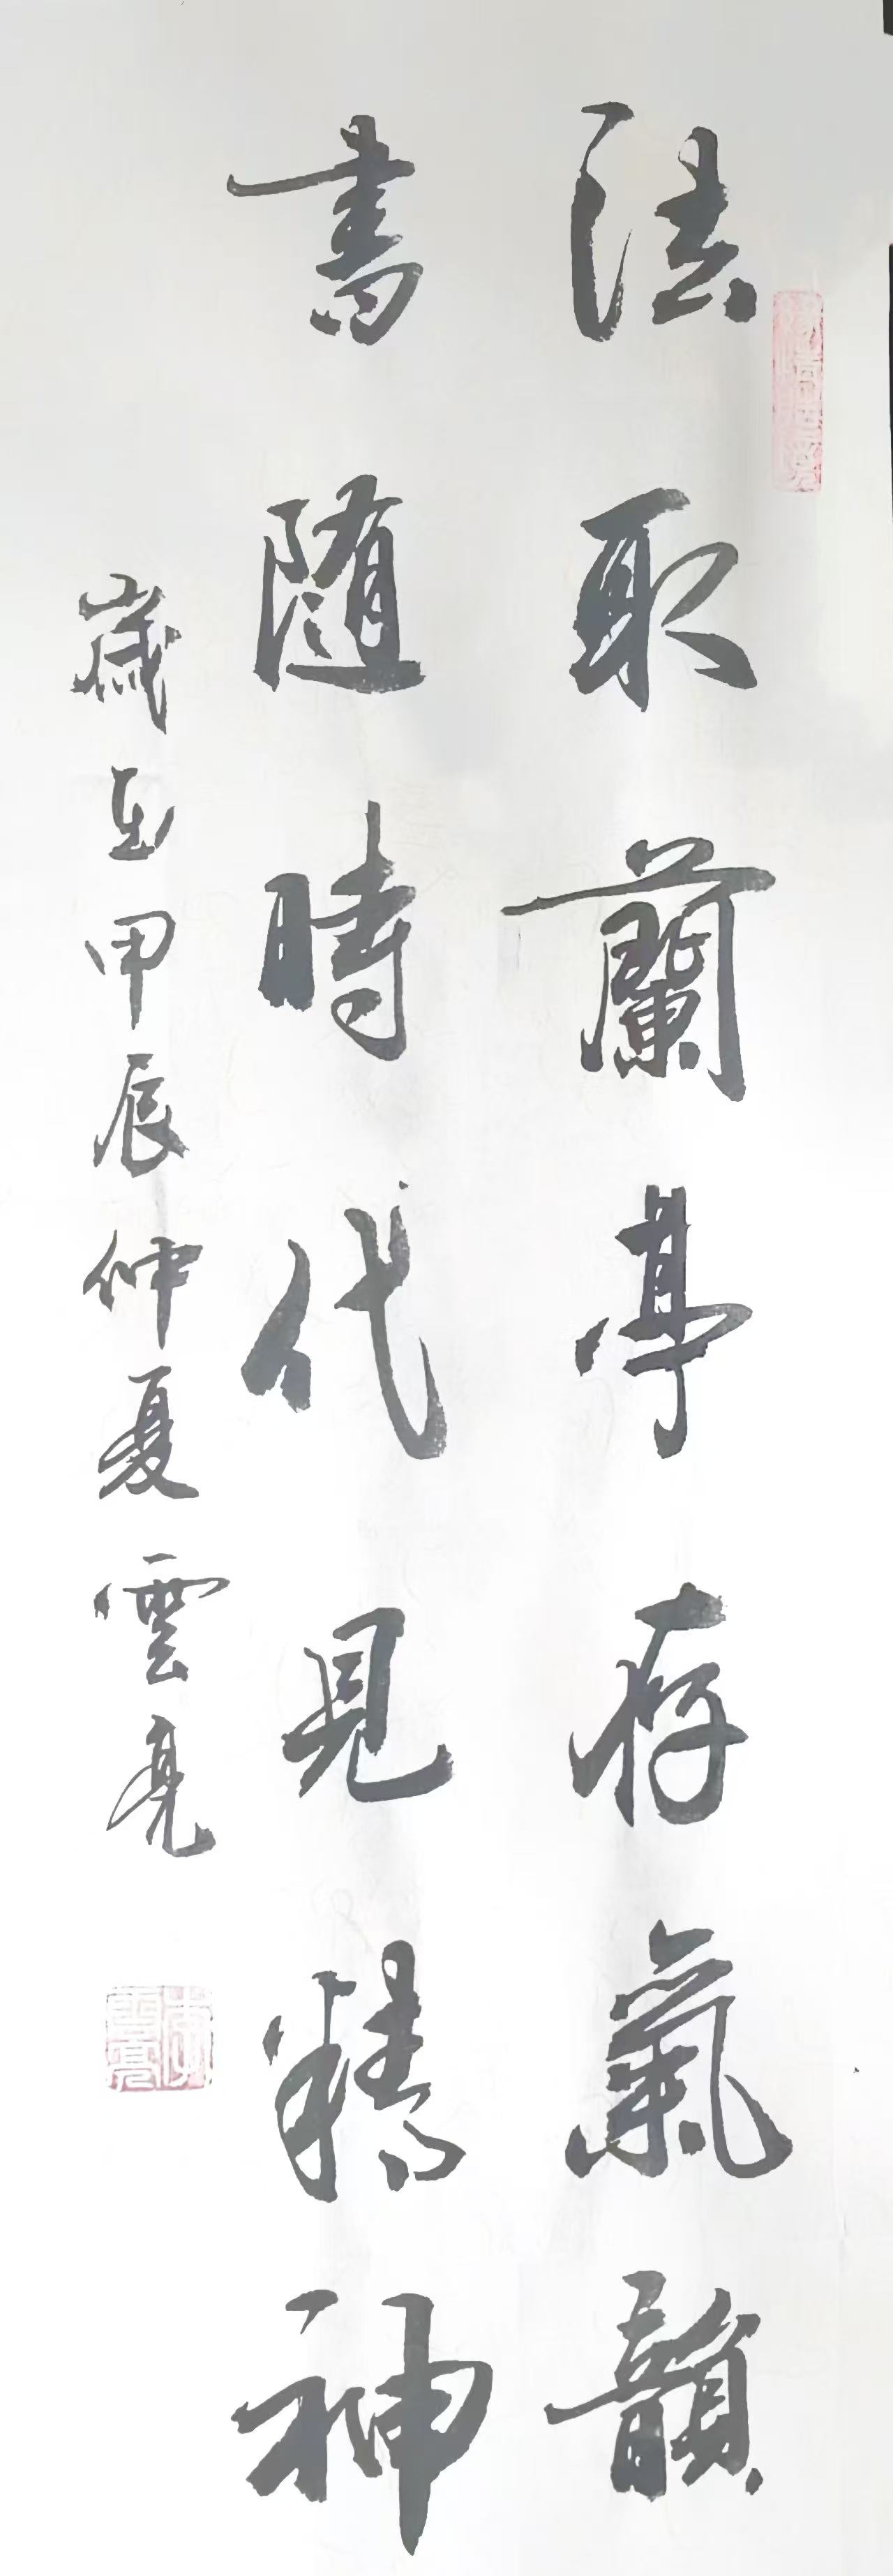 法取蘭亭存氣韻
書随時代見精神
歲在甲辰仲夏雲亮